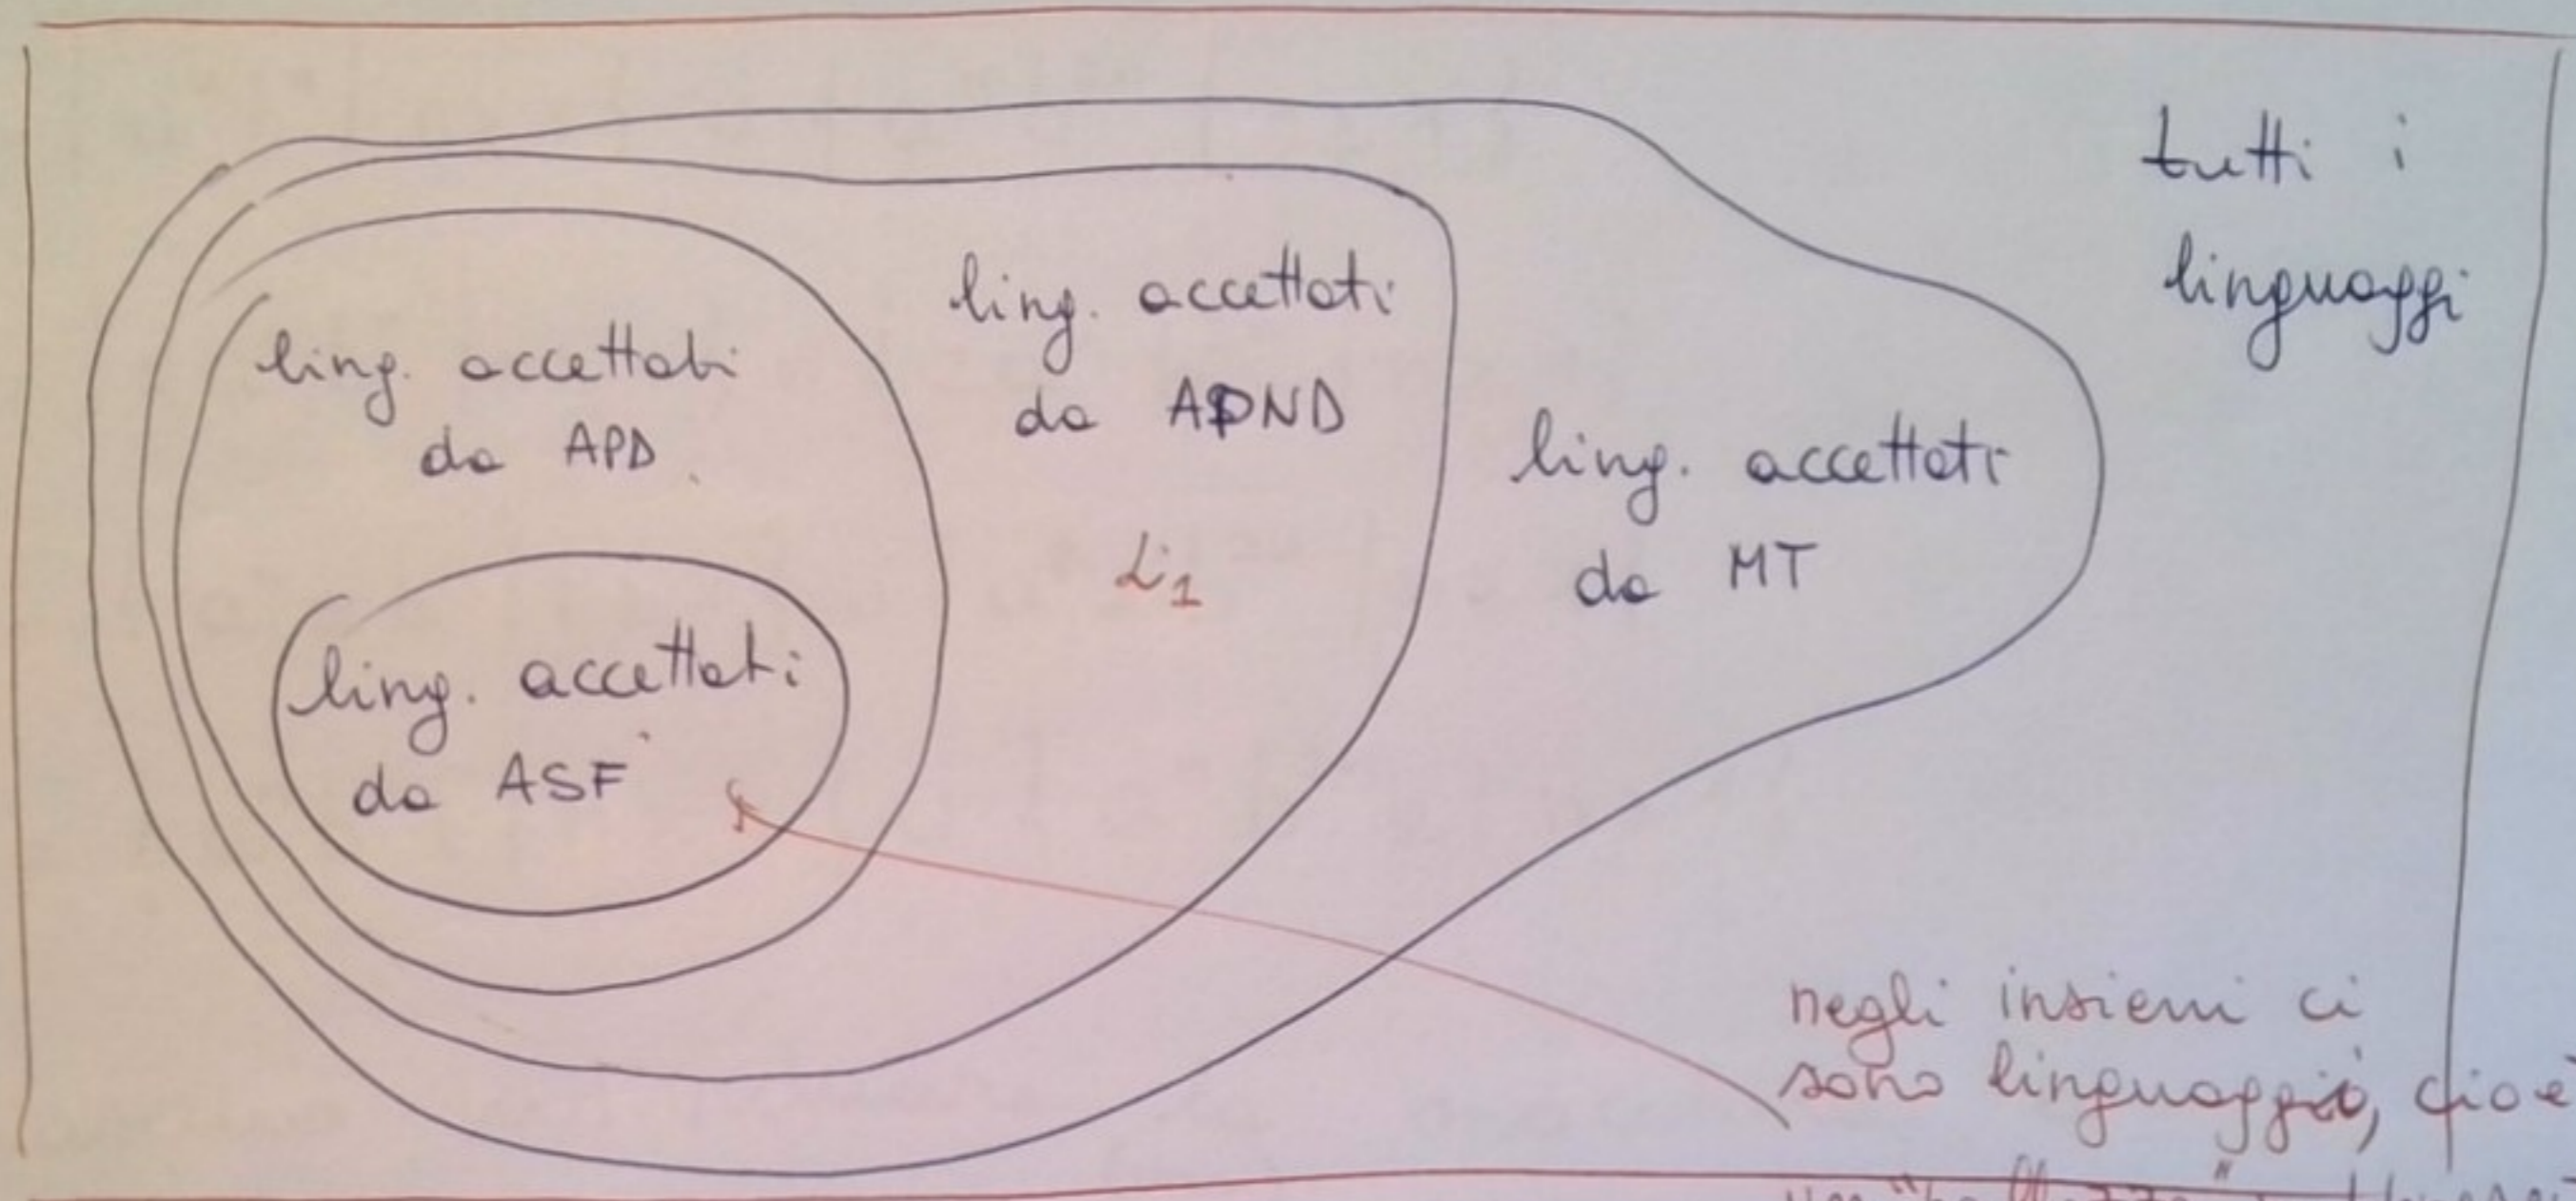 tutti i
linguaggi
ling. accettati
da APND
ling. accettati
da APD
ling. accettati
da MT
L1
ling. accettati
da ASF
negli insiemi ci
sono linguaggi, cioè